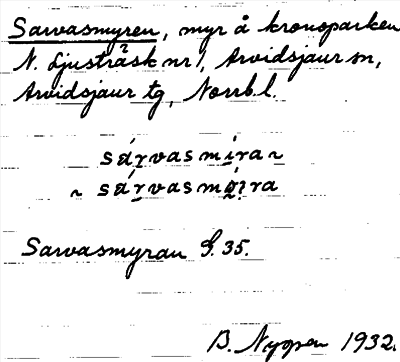 Sarvasmyren, myr å kronoparken
N. Ljusträsk nr 1, Arvidsjaur sn,
Arvidsjaur tg, Norrb.l.
sárvasmira~
~ sárvasmira
Sarvasmyran G. 35.
B. Nygren 1932.